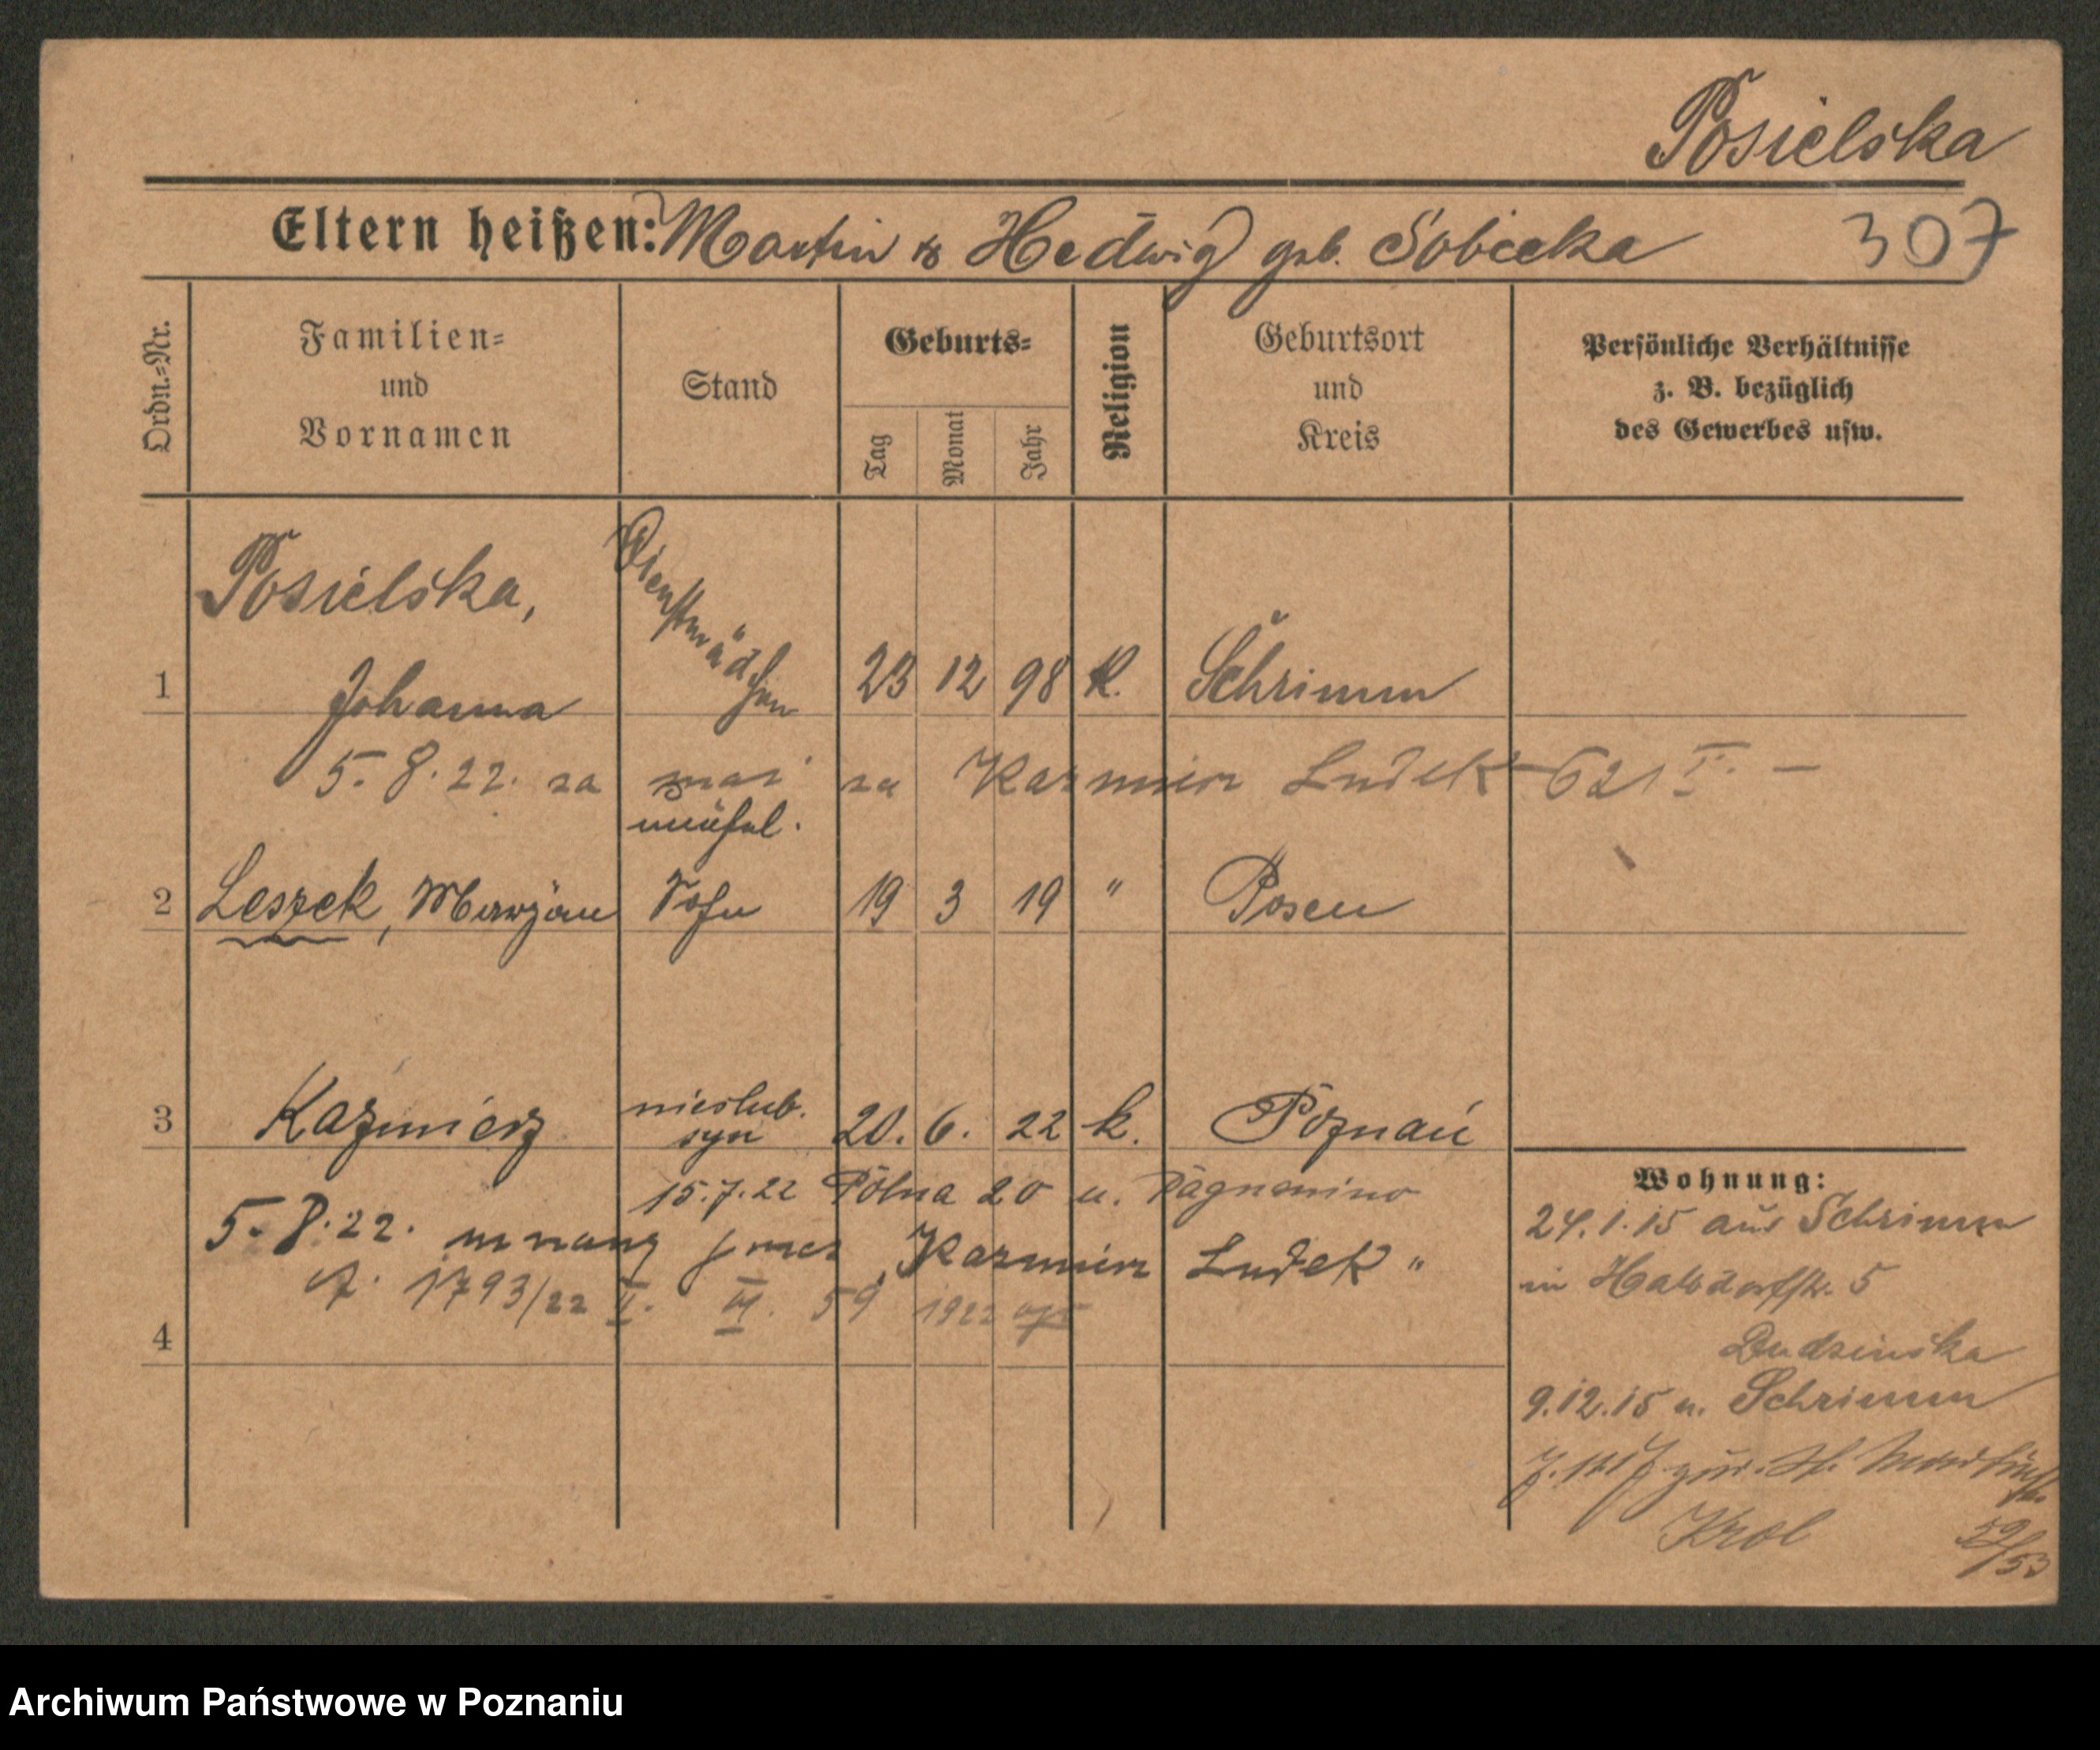 Posielska
Eltern heißen: Martin & Hedwig geb. Sobiecka 307
Ordn.=Nr.
Familien=
und
Vornamen
Stand
Geburts=
Tag
Monat
Jahr
Religion
Geburtsort
und
Kreis
Persönliche Verhältnisse
z. B. bezüglich
des Gewerbes usw.
1 Posielska,
Johanna Dienstmädchen 23 12 98 k. Schrimm
5. 8. 22. za mąż za Kazmierz Ludek 621 I. —
unehel.
2 Leszek, Maryan Sohn 19 3 19 " Posen
3 Kazimierz nieślub.
syn 20. 6. 22 k. Poznań
15.7.22 Polna 20 u.
5. 8. 22. uznany przez Kazmierz Ludek "
1793/22 II. 59 1922
4
Wohnung:
24.1.15 aus Schrimm
in Halbdorfstr. 5
Budzinska
9.12.15 n. Schrimm
Krol
59/53
Archiwum Państwowe w Poznaniu